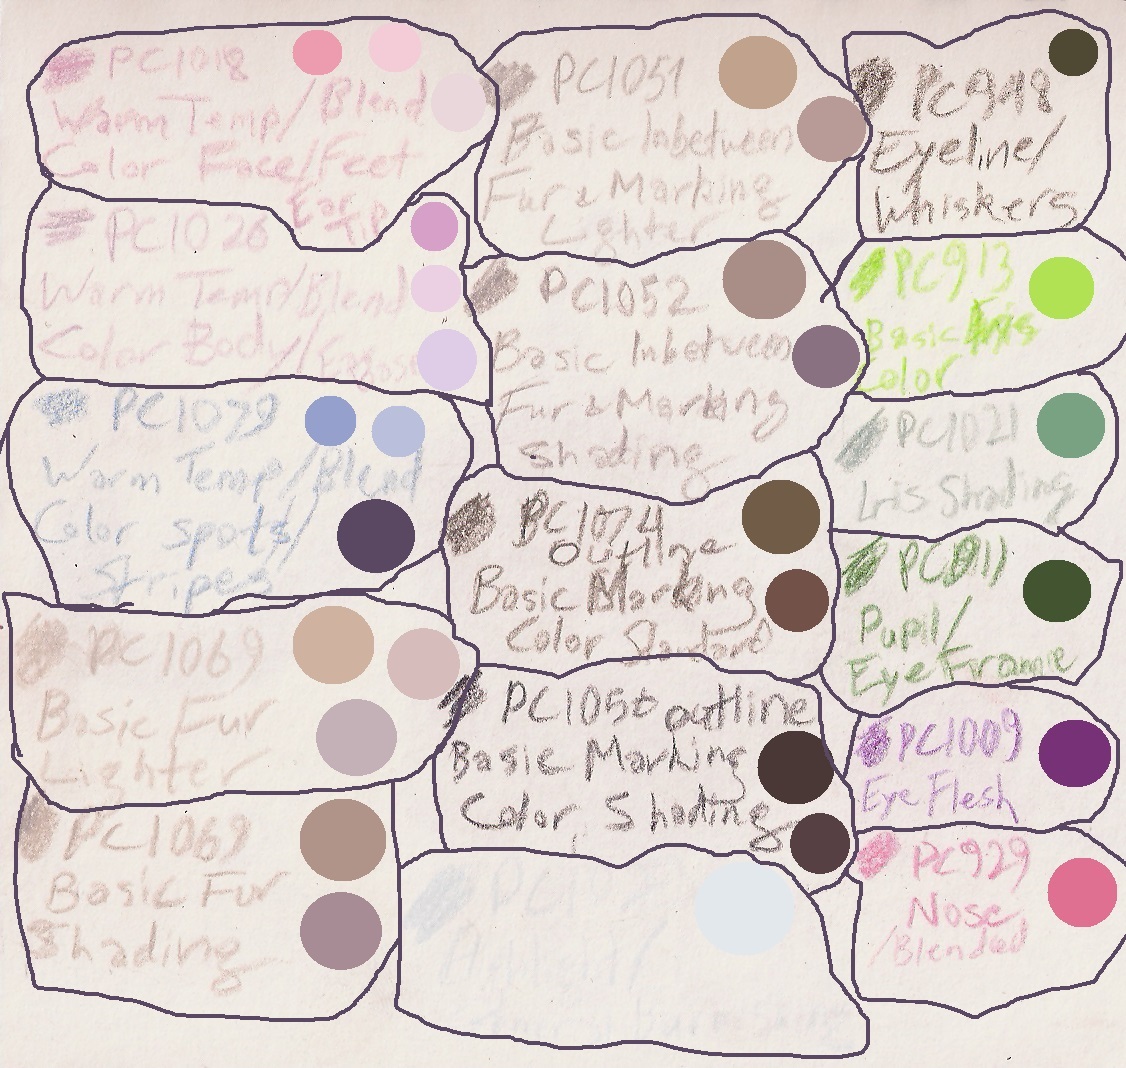 PC1018
Warm Temp/Blend
Color Face/Feet
Ear Tip
PC1026
Warm Temp/Blend
Color Body/
PC1039
Warm Temp/Blend
Color spots/
Stripes
PC1069
Basic Fur
Lighter
PC1069
Basic Fur
Shading
PC1051
Basic Inbetween
Fur & Marking
Lighter
PC1052
Basic Inbetween
Fur & Marking
Shading
PC1074
outline
Basic Marking
Color Standard
PC1056 outline
Basic Marking
Color Shading
PC948
Eyeline/
Whiskers
PC913
Basic Iris
Color
PC1021
Iris Shading
PC911
Pupil/
Eye Frame
PC1009
Eye Flesh
PC929
Nose
/Blended